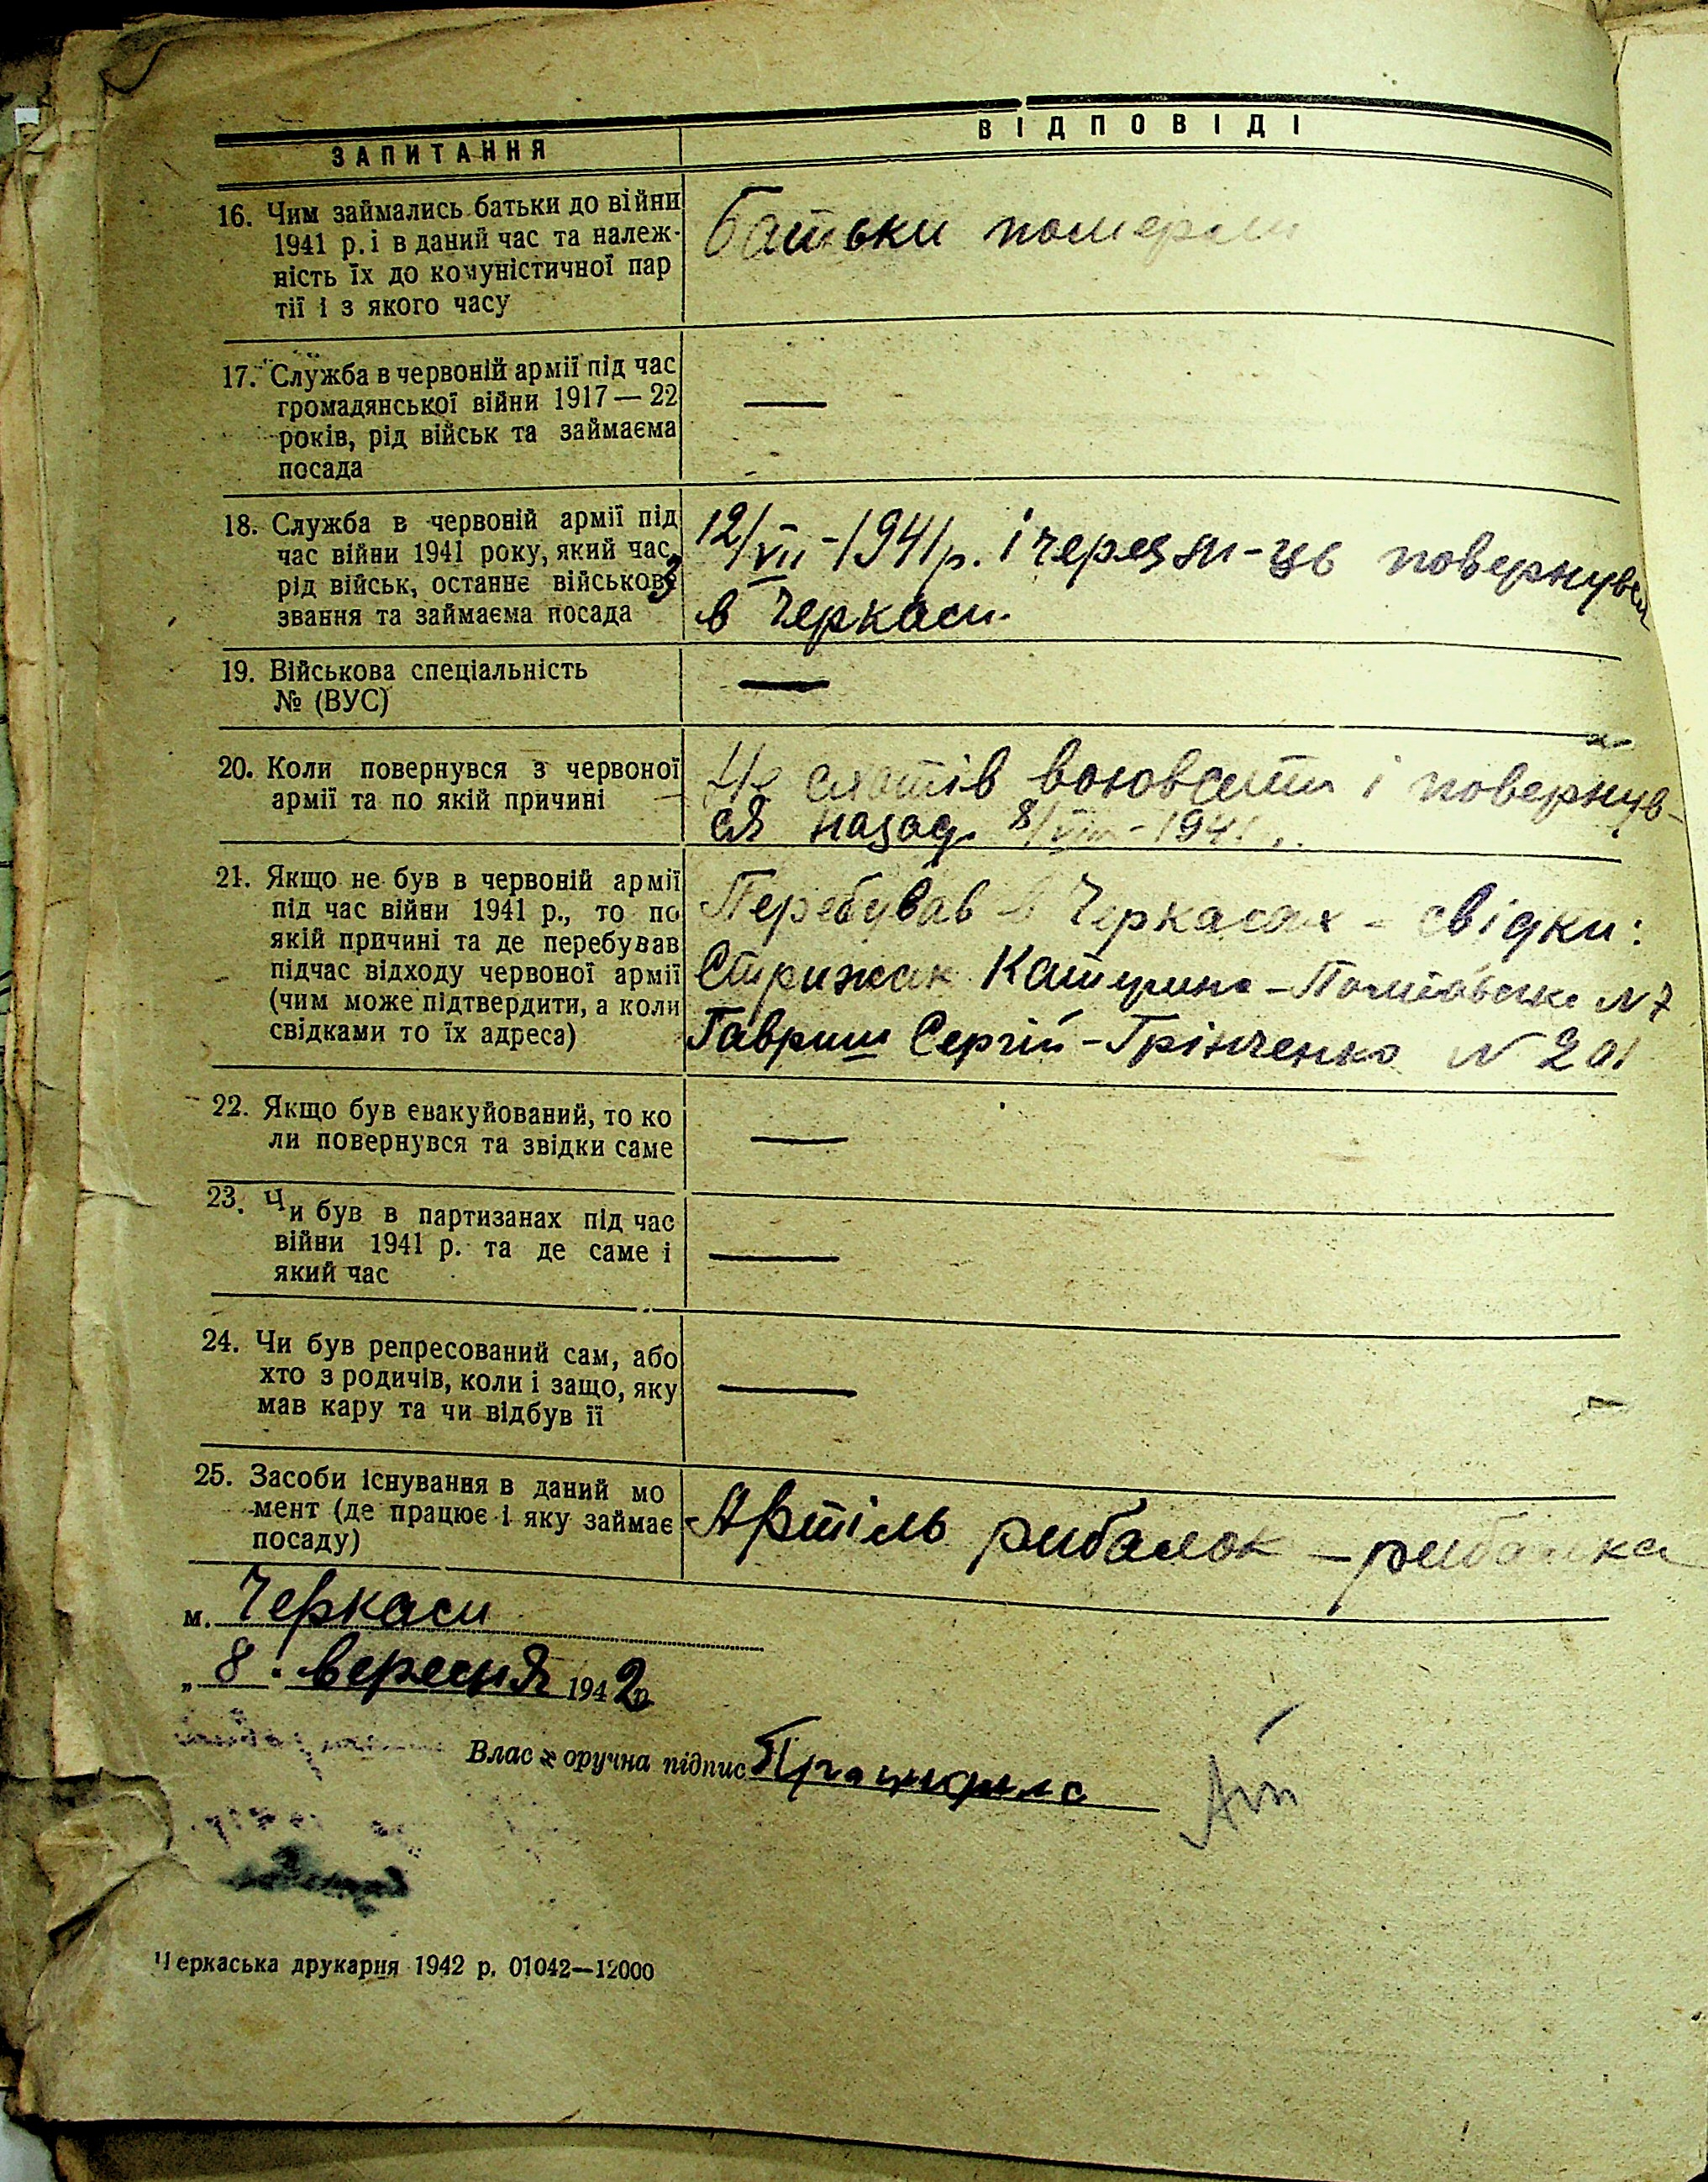 ЗАПИТАННЯ
ВІДПОВІДІ
16. Чим займались батьки до війни
1941 р. і в даний час та належ-
ність їх до комуністичної пар
тії і з якого часу
Батьки померли
17. Служба в червоній армії під час
громадянської війни 1917—22
років, рід військ та займаєма
посада
—
18. Служба в червоній армії під
час війни 1941 року, який час,
рід військ, останнє військове
звання та займаєма посада
12/VII-1941р. і через м-ць повернувся
в Черкаси.
19. Військова спеціальність
№ (ВУС)
—
20. Коли повернувся з червоної
армії та по якій причині
Не схотів воювати і повернув-
ся назад. 8/VIII-1941
21. Якщо не був в червоній армії
під час війни 1941 р., то по
якій причині та де перебував
підчас відходу червоної армії
(чим може підтвердити, а коли
свідками то їх адреса)
Перебував в Черкасах - свідки:
Стрижак Катерина - N 7
Гавриш Сергій - Грінченко N 201
22. Якщо був евакуйований, то ко
ли повернувся та звідки саме
—
23. Чи був в партизанах під час
війни 1941 р. та де саме і
який час
—
24. Чи був репресований сам, або
хто з родичів, коли і защо, яку
мав кару та чи відбув її
—
25. Засоби існування в даний мо
мент (де працює і яку займає
посаду)
Артіль рибалок - рибалка
м. Черкаси
„ 8. вересня 1942р.
Влас оручна підпис
Черкаська друкарня 1942 р. 01042—12000